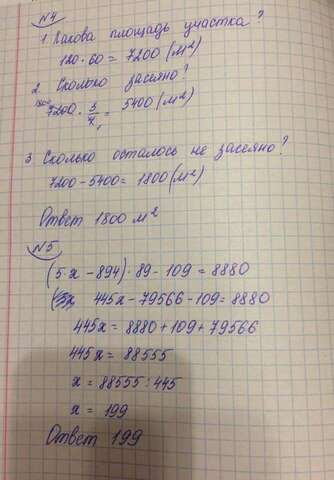 №4
1. Какова площадь участка?
120·60 = 7200 (м²)
2. Сколько засеяно?
7200 · 3/4 = 5400 (м²)
3 Сколько осталось не засеяно?
7200 - 5400 = 1800 (м²)
Ответ 1800 м²
№5
(5x - 894)·89 - 109 = 8880
445x - 79566 - 109 = 8880
445x = 8880 + 109 + 79566
445x = 88555
x = 88555 : 445
x = 199
Ответ 199